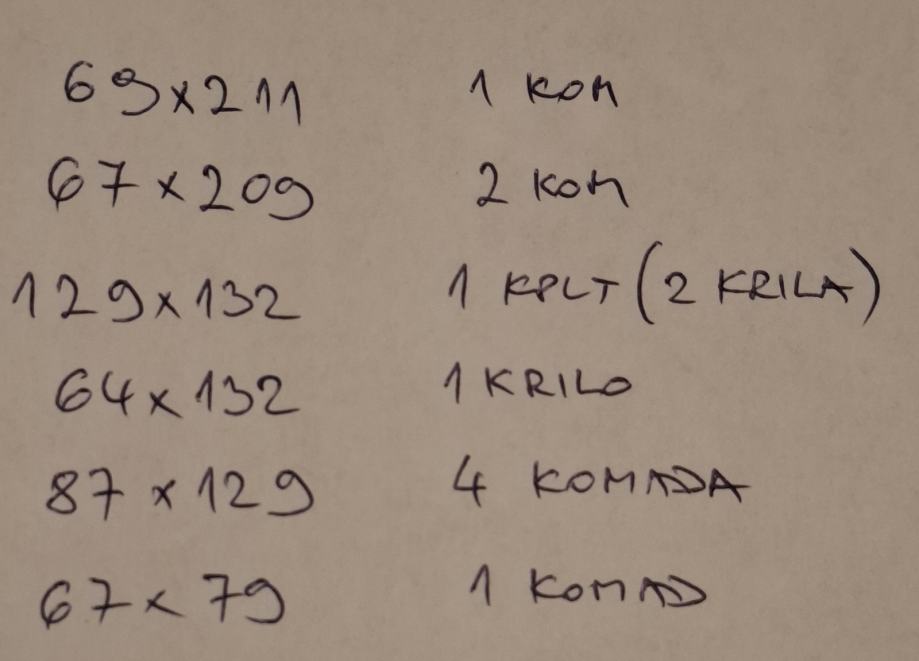 69x211 1 KOM
67x209 2 KOM
129x132 1 KPLT (2 KRILA)
64x132 1 KRILO
87x129 4 KOMADA
67x79 1 KOMAD